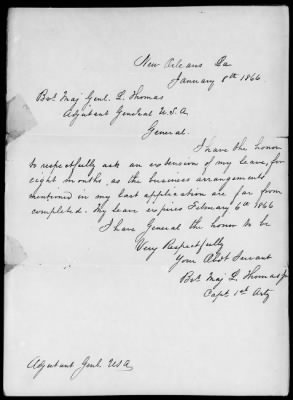 New Orleans La
January 8th 1866
Bvt. Maj Genl. L. Thomas
Adjutant General U.S.A.
General.
I have the honor
to respectfully ask an extension of my leave, for
eight months, as the business arrangements
mentioned in my last application are far from
completed. My leave expires February 6th 1866
I have General the honor to be
Very Respectfully
Your Obdt Servant
Bvt. Maj L. Thomas Jr
Capt 1st Arty
Adjutant Genl. USA